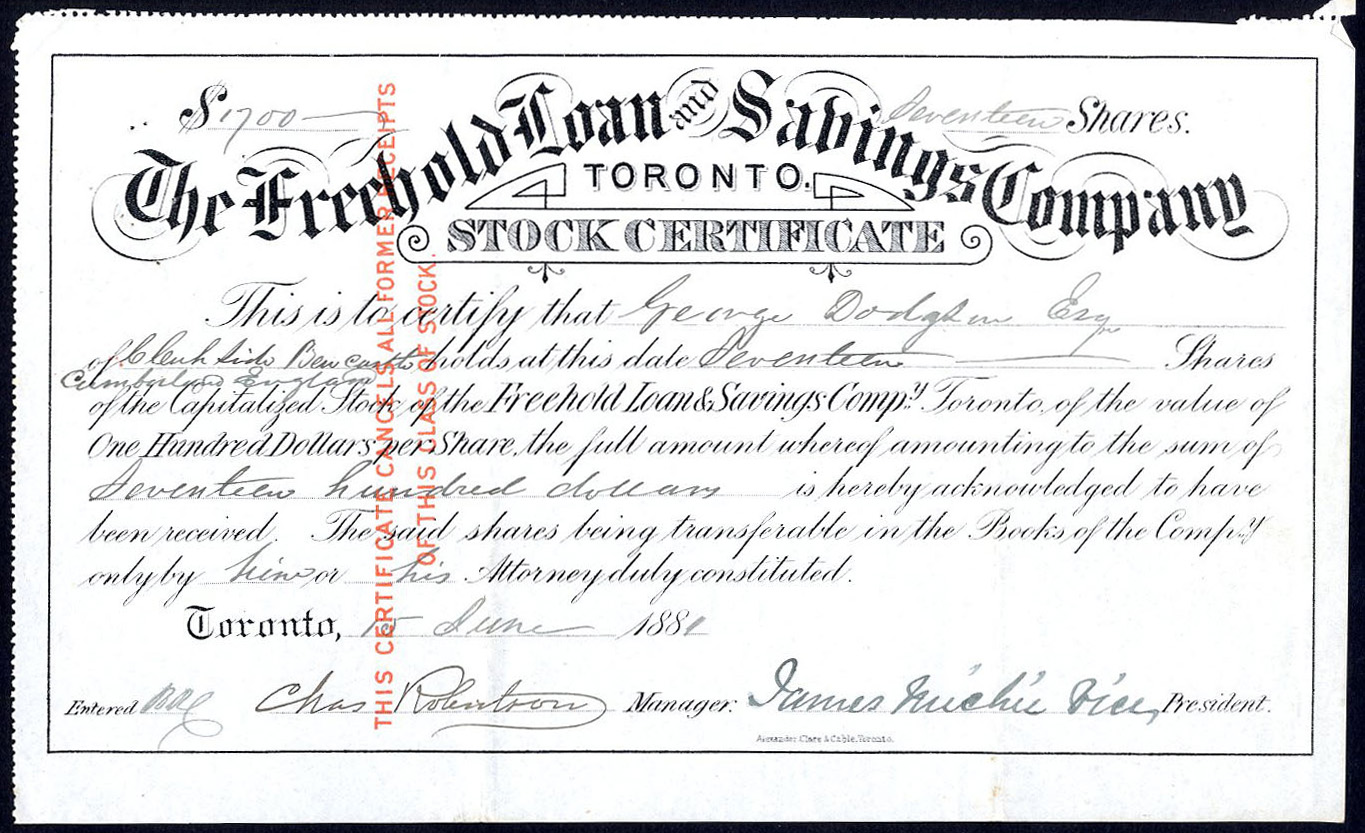 $1700 Seventeen Shares.
The Freehold Loan and Savings Company
TORONTO.
STOCK CERTIFICATE
This is to certify that George Dodgson Esqr
of Side Bewcastle holds at this date Seventeen Shares
Cumberland England
of the Capitalized Stock of the Freehold Loan & Savings Compy. Toronto, of the value of
One Hundred Dollars per Share, the full amount whereof amounting to the sum of
Seventeen hundred dollars is hereby acknowledged to have
been received. The said shares being transferable in the Books of the Compy.
only by him or his Attorney duly constituted.
Toronto, 15 June 1881
Entered Chas Robertson Manager. James Michie Vice, President.
Alexander Clare & Cable, Toronto.
THIS CERTIFICATE CANCELS ALL FORMER RECEIPTS
OF THIS CLASS OF STOCK.